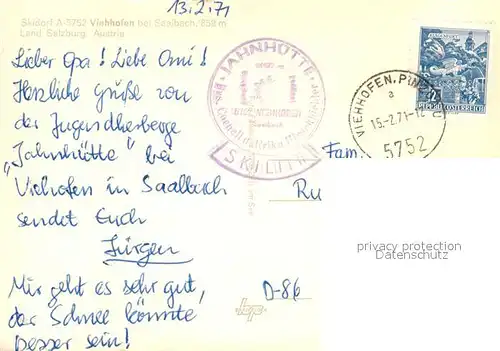 13.2.71
Skidorf A-5752 Viehhofen bei Saalbach, 858 m
Land Salzburg, Austria
Lieber Opa! Liebe Omi!
Herzliche Grüße von
der Jugendherberge
"Jahnhütte" bei
Viehofen in Saalbach
sendet Euch
Jürgen
Mir geht es sehr gut,
der Schnee könnte
besser sein!
JAHNHÜTTE
SKILIFTE
VIEHHOFEN, PINZG
a
15.-2.71-12
5752
REPUBLIK ÖSTERREICH
Fam.
Ru
D-86
privacy protection
Datenschutz